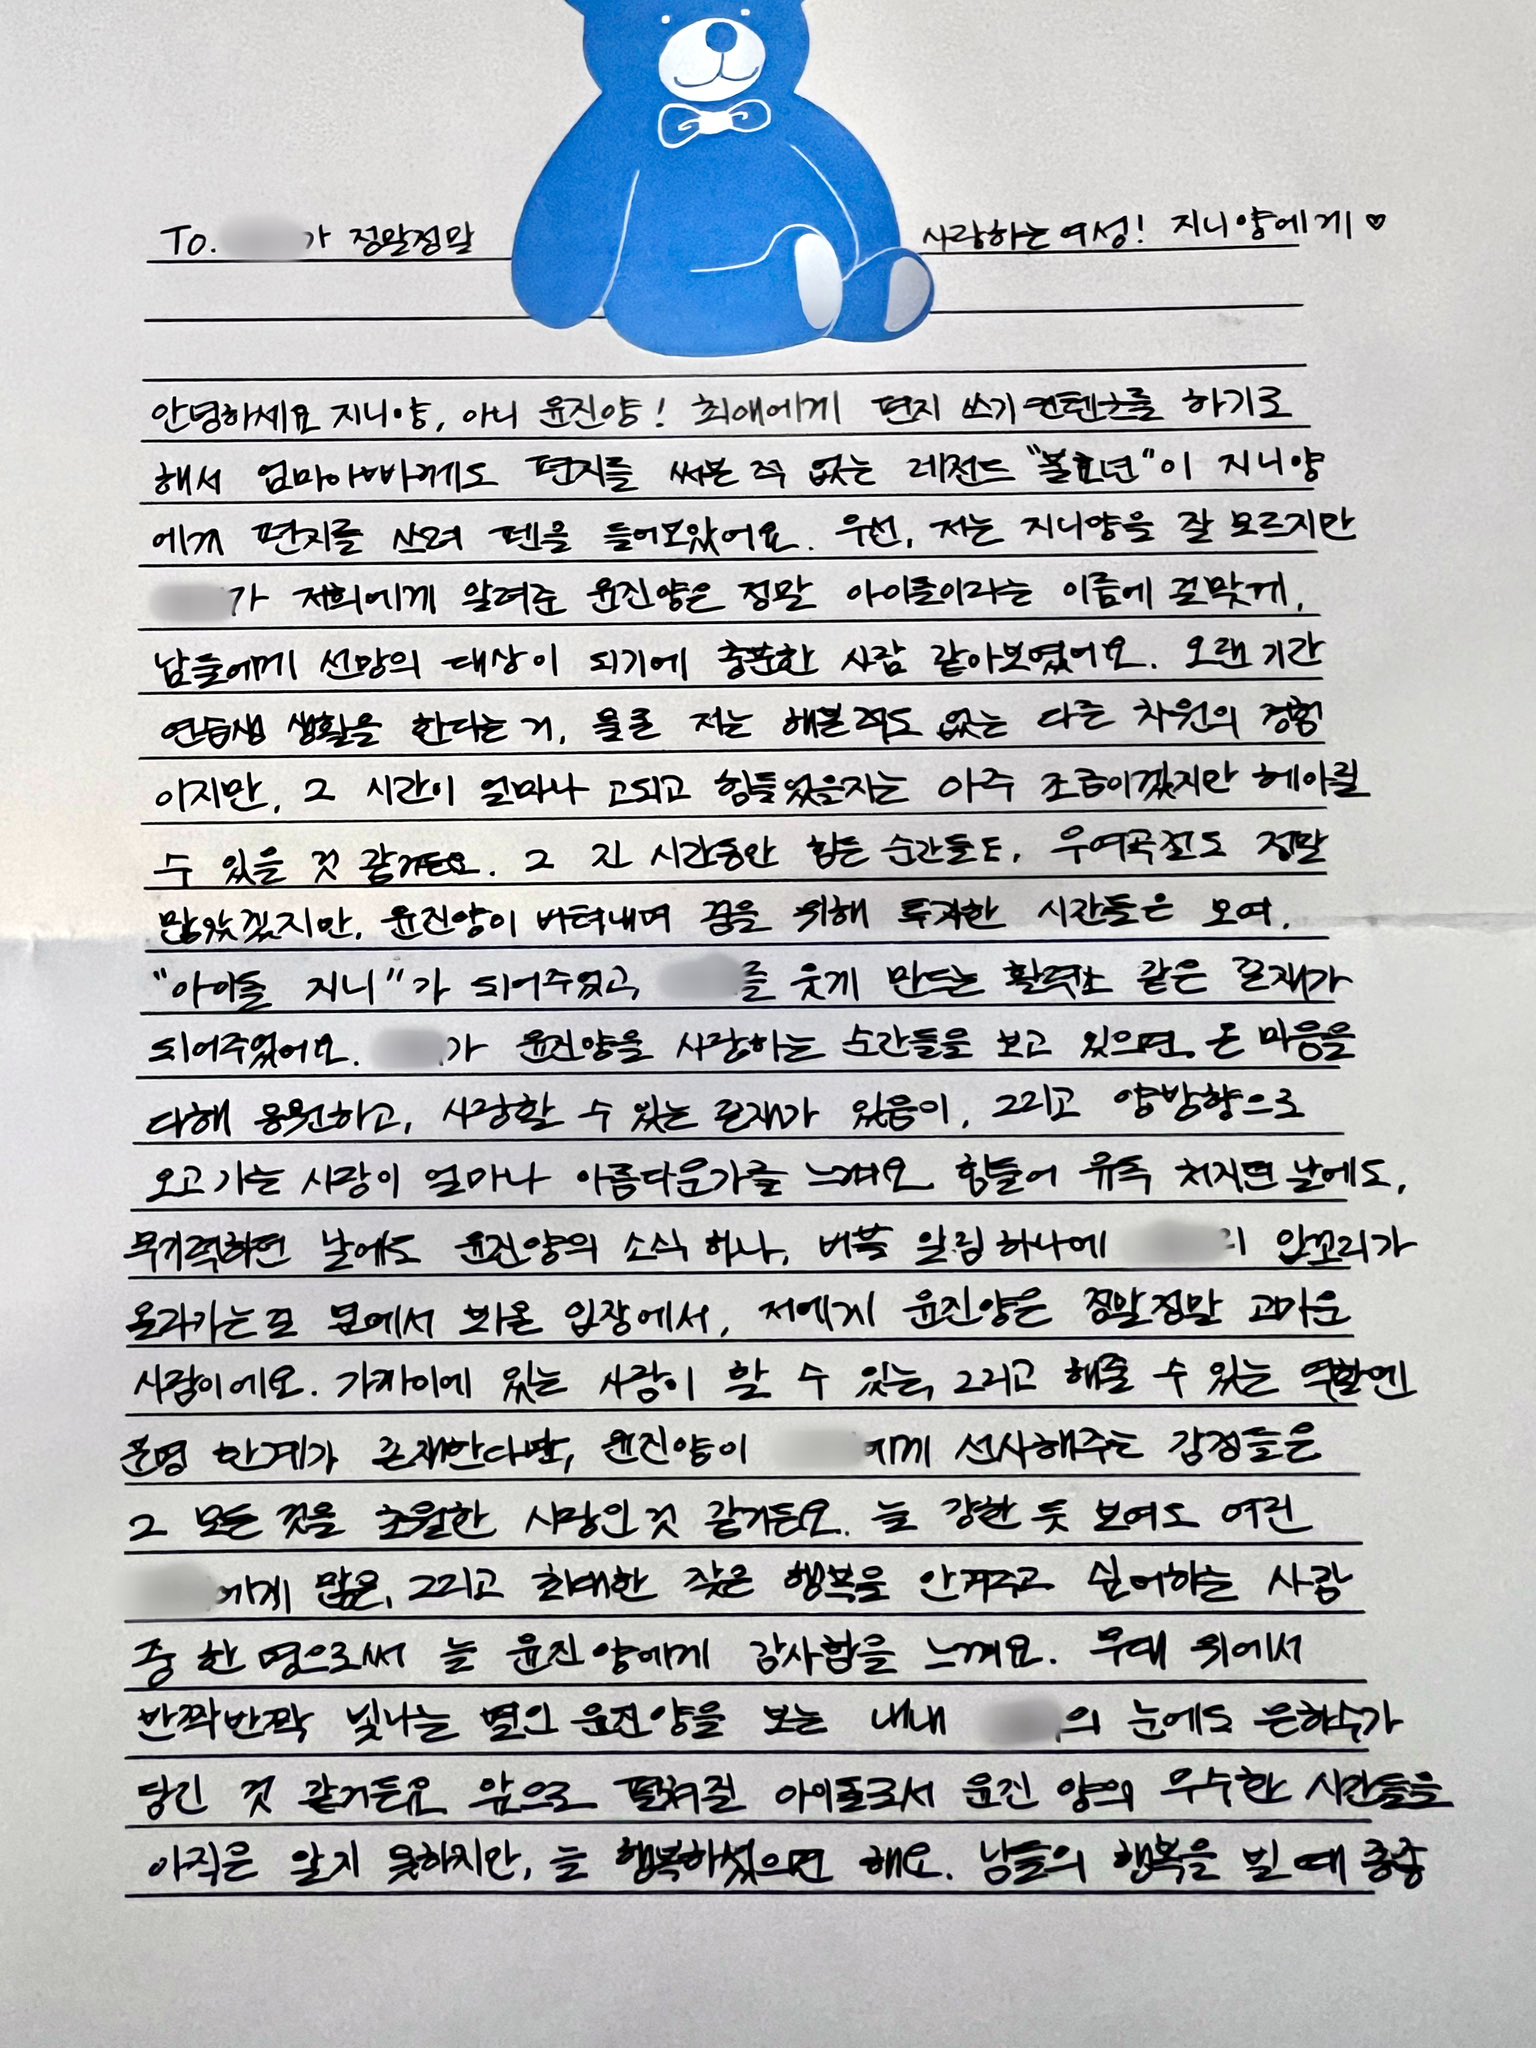 To. 가 정말정말 사랑하는 여성! 지니양에게♡
안녕하세요 지니양, 아니 윤진양! 최애에게 편지 쓰기 컨텐츠를 하기로
해서 엄마아빠께도 편지를 써본 적 없는 레전드 "불효년"이 지니양
에게 편지를 쓰려 펜을 들어보았어요. 우선, 저는 지니양을 잘 모르지만
가 저희에게 알려준 윤진양은 정말 아이돌이라는 이름에 걸맞게,
남들에게 선망의 대상이 되기에 충분한 사람 같아보였어요. 오랜 기간
연습생 생활을 한다는 거, 물론 저는 해본적도 없는 다른 차원의 경험
이지만, 그 시간이 얼마나 고되고 힘들었을지는 아주 조금이겠지만 헤아릴
수 있을 것 같거든요. 그 긴 시간동안 힘든 순간들도, 우여곡절도 정말
많았겠지만, 윤진양이 버텨내며 꿈을 위해 투자한 시간들은 모여,
"아이돌 지니"가 되어주었고, 를 웃게 만드는 활력소 같은 존재가
되어주었어요. 가 윤진양을 사랑하는 순간들을 보고 있으면, 온 마음을
다해 응원하고, 사랑할 수 있는 존재가 있음이, 그리고 양방향으로
오고 가는 사랑이 얼마나 아름다운가를 느껴요. 힘들어 유독 처지던 날에도,
무기력하던 날에도 윤진양의 소식 하나, 버블 알림 하나에 의 입꼬리가
올라가는 걸 본에서 봐온 입장에서, 저에게 윤진양은 정말정말 고마운
사람이에요. 가까이에 있는 사람이 할 수 있는, 그리고 해줄 수 있는 역할엔
분명 한계가 존재한다만, 윤진양이 에게 선사해주는 감정들은
그 모든 것을 초월한 사랑인 것 같거든요. 늘 강한 듯 보여도 여린
에게 많은, 그리고 최대한 잦은 행복을 안겨주고 싶어하는 사람
중 한 명으로써 늘 윤진양에게 감사함을 느껴요. 무대 위에서
반짝반짝 빛나는 별인 윤진양을 보는 내내 의 눈에도 은하수가
담긴 것 같거든요. 앞으로 펼쳐질 아이돌로서 윤진 양의 무수한 시간들을
아직은 알지 못하지만, 늘 행복하셨으면 해요. 남들의 행복을 빌 때 종종